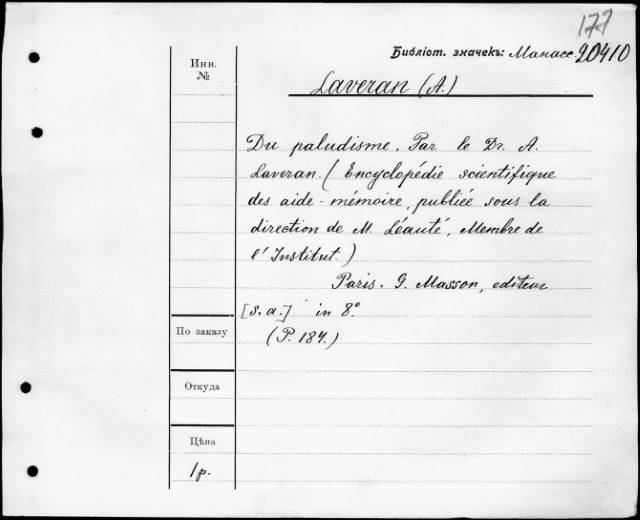 177
Библіот. значекъ: Манасс. 20410
Инв.
№
Laveran (A.)
Du paludisme. Par le Dr. A.
Laveran. (Encyclopédie scientifique
des aide-mémoire, publiée sous la
direction de M. Léauté, Membre de
l'Institut.)
Paris. G. Masson, editeur
[s. a.] in 8°
По заказу
(P. 184.)
Откуда
Цѣна
1 р.